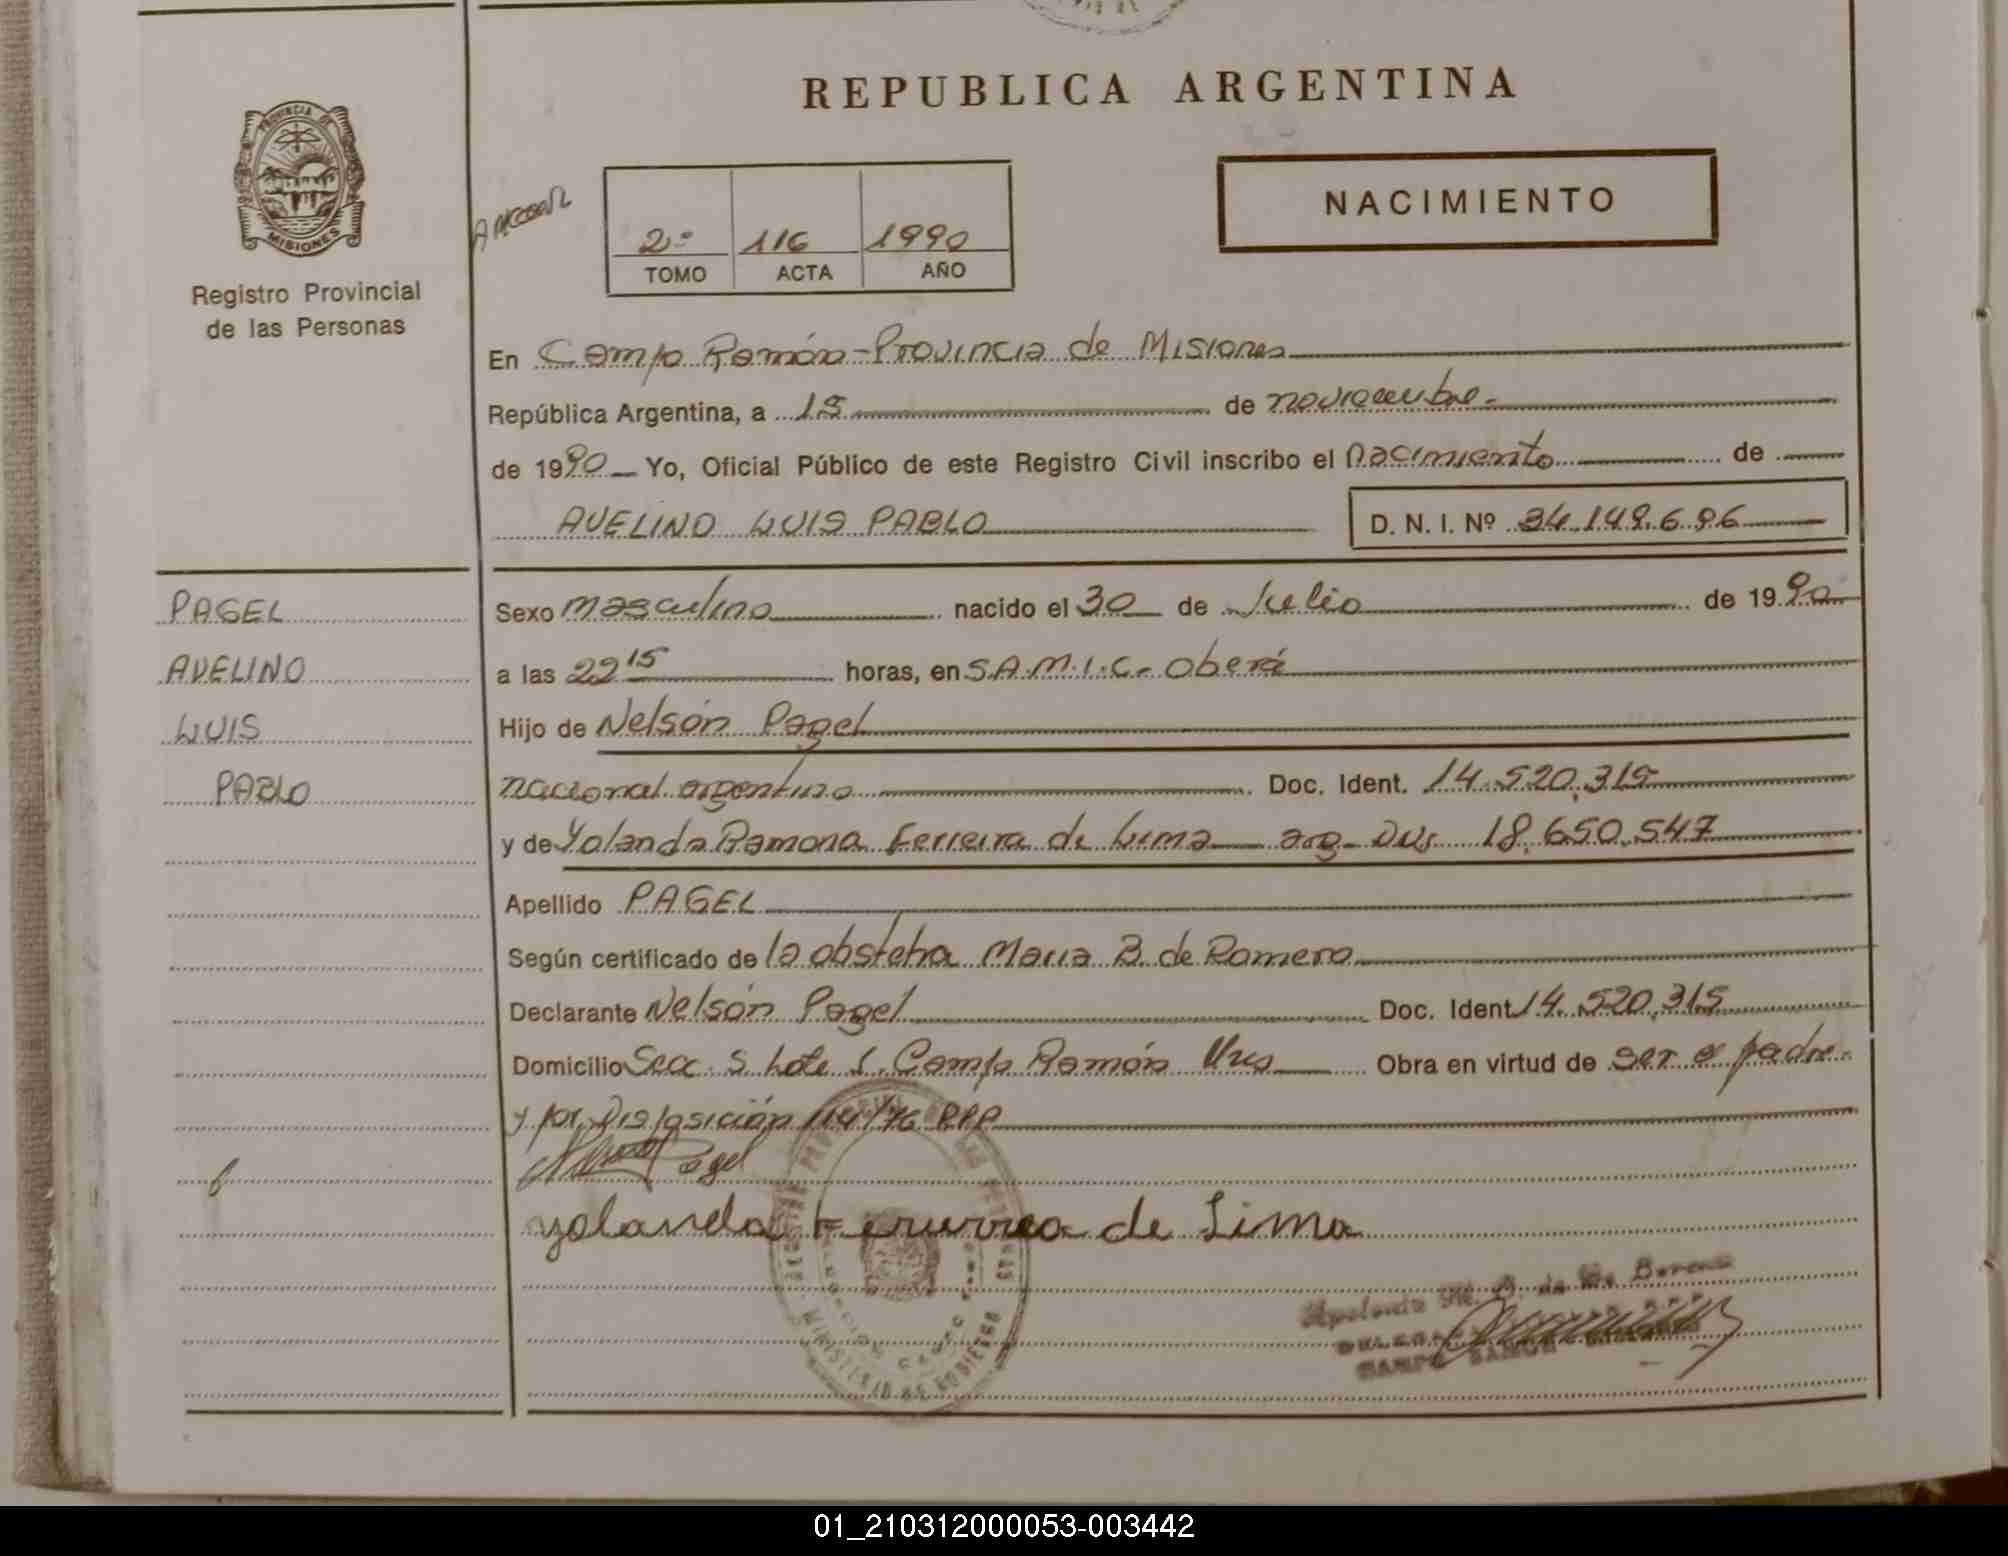 REPUBLICA ARGENTINA
PROVINCIA DE
MISIONES
Registro Provincial
de las Personas
NACIMIENTO
2º 116 1990
TOMO ACTA AÑO
En Campo Ramón - Provincia de Misiones
República Argentina, a 15 de noviembre.
de 1990 Yo, Oficial Público de este Registro Civil inscribo el nacimiento de
AVELINO LUIS PABLO D. N. I. Nº 34.149.696
PAGEL
AVELINO
LUIS
PABLO
Sexo masculino nacido el 30 de Julio de 1990
a las 22 15 horas, en S.A.M.I.C. Oberá
Hijo de Nelsón Pagel
nacional argentino Doc. Ident. 14.520.315
y de Yolanda Ramona Ferreira de Lima arg. DNI 18.650.547
Apellido PAGEL
Según certificado de la obstetra Maria B. de Romero
Declarante Nelsón Pagel Doc. Ident 14.520.315
Domicilio Secc. 5 Lote 1 Campo Ramón Mnes Obra en virtud de ser el padre.
y por Disposición 114/76 RPP
Pagel
yolanda Ferurrea de Lima
MINISTERIO DE GOBIERNO
de Barena
CAMPO RAMON
01_210312000053-003442